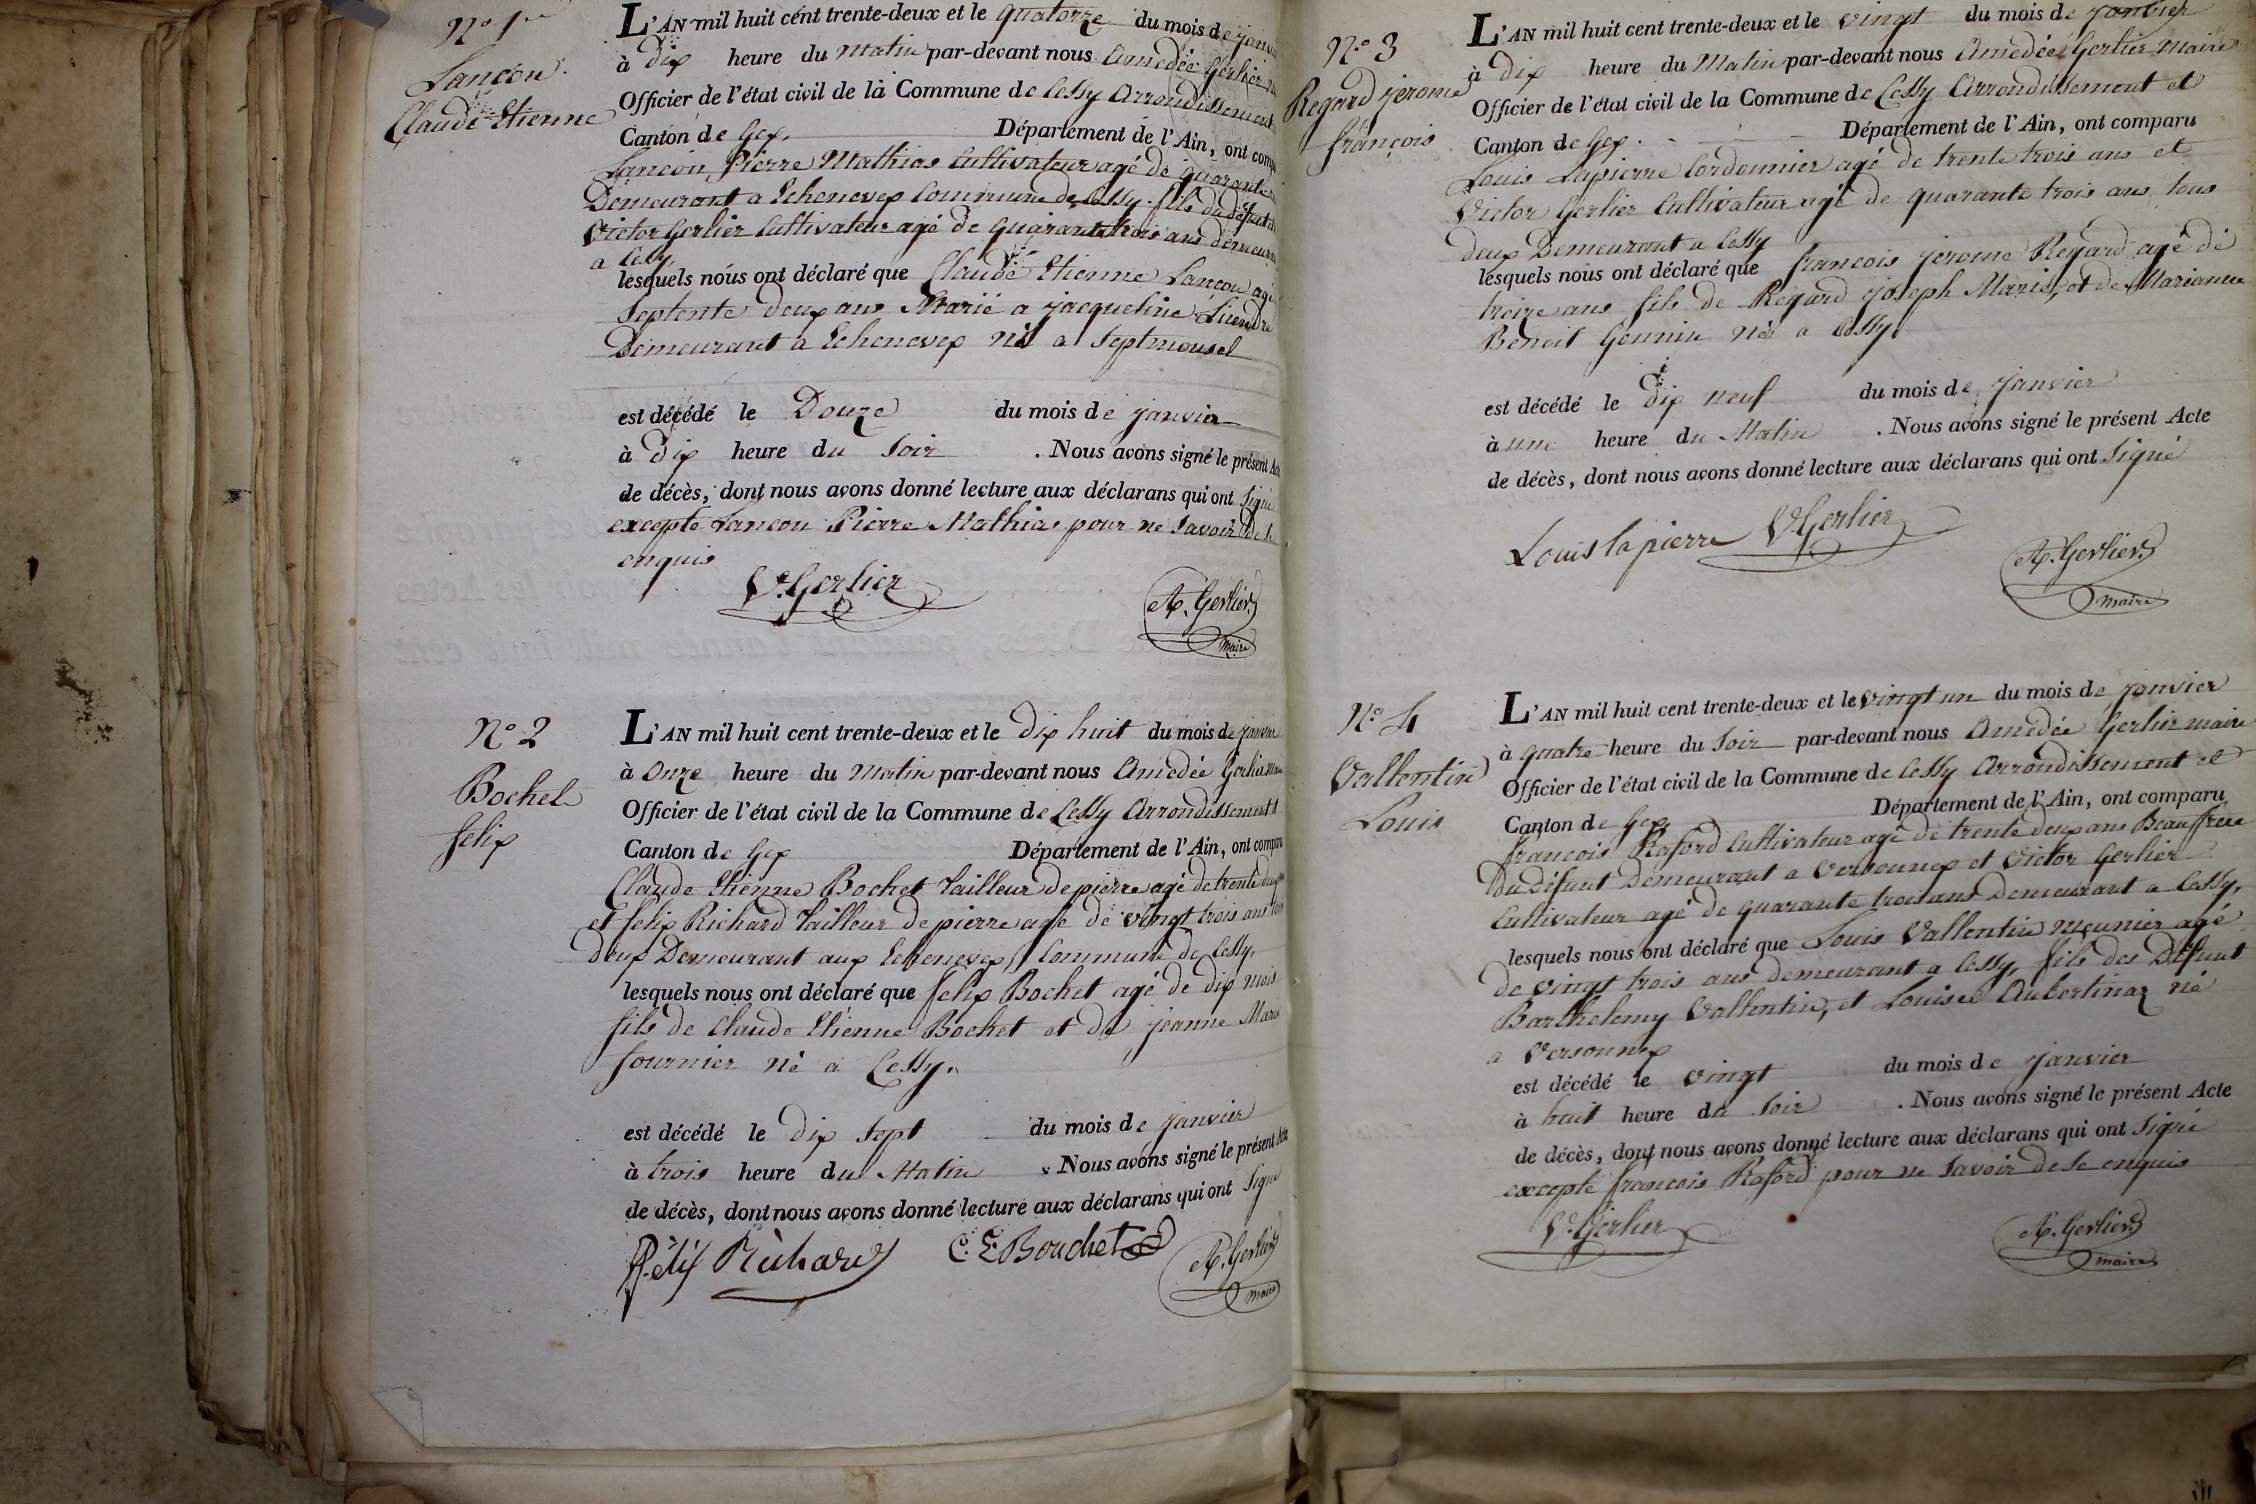 No 1er
Lançon
Claude Etienne
L'AN mil huit cent trente-deux et le quatorze du mois de janv
à dix heure du Matin par-devant nous Amedée Gerlier
Officier de l'état civil de la Commune de Cessy Arrondissement
Canton de Gex. Département de l'Ain, ont comp
Lancon Pierre Mathias Cultivateur agé de quarante
Demeurant a Echenevex Commune de Cessy. fils du défunt
Victor Gerlier Cultivateur agé de quarante trois ans demeur
a Cessy
lesquels nous ont déclaré que Claude Etienne Lancon agé
Septente deux ans Marié a jacqueline
Demeurant a Echenevex né a Septmousel
est décédé le Douze du mois de janvier
à dix heure du Soir . Nous avons signé le présent Ac
de décès, dont nous avons donné lecture aux déclarans qui ont Signé
excepte Lancon Pierre Mathias pour ne Savoir de ce
enquis
V. Gerlier
A. Gerlier
maire
No 2
Bochet
felix
L'AN mil huit cent trente-deux et le dix huit du mois de janvier
à Onze heure du Matin par-devant nous Amedée Gerlier
Officier de l'état civil de la Commune de Cessy Arrondissement
Canton de Gex Département de l'Ain, ont comparu
Claude Etienne Bochet Tailleur de pierre agé de trente deux
et felix Richard Tailleur de pierre agé de vingt trois ans tous
deux Demeurant aux Echenevex, Commune de Cessy.
lesquels nous ont déclaré que felix Bochet agé de dix mois
fils de Claude Etienne Bochet et de jeanne Marie
fournier né a Cessy.
est décédé le dix sept du mois de janvier
à trois heure du Matin . Nous avons signé le présent Acte
de décès, dont nous avons donné lecture aux déclarans qui ont Signé
Félix Richard C. E Bouchet
A. Gerlier
maire
No 3
Regard jerome
françois
L'AN mil huit cent trente-deux et le vingt du mois de janvier
à dix heure du Matin par-devant nous Amedée Gerlier Maire
Officier de l'état civil de la Commune de Cessy Arrondissement et
Canton de Gex. Département de l'Ain, ont comparu
Louis Lapierre Cordonnier agé de trente trois ans et
Victor Gerlier Cultivateur agé de quarante trois ans, tous
deux Demeurant a Cessy
lesquels nous ont déclaré que francois jerome Regard agé de
treize ans fils de Regard joseph Marie, et de Marianne
Benoit Gonnin né a Cessy.
est décédé le dix neuf du mois de janvier
à une heure du Matin . Nous avons signé le présent Acte
de décès, dont nous avons donné lecture aux déclarans qui ont Signé
Louis lapierre V. Gerlier
A. Gerlier
maire
No 4
Vallentin
Louis
L'AN mil huit cent trente-deux et le vingt un du mois de janvier
à quatre heure du Soir par-devant nous Amedée Gerlier maire
Officier de l'état civil de la Commune de Cessy Arrondissement et
Canton de Gex, Département de l'Ain, ont comparu
francois Raford Cultivateur agé de trente deux ans Beauffrere
Du Défunt Demeurant a Versonnex et Victor Gerlier
Cultivateur agé de quarante trois ans Demeurant a Cessy,
lesquels nous ont déclaré que Louis Vallentin meunier agé
de vingt trois ans demeurant a Cessy, fils des Défunt
Barthelemy Vallentin, et Louise Aubertinaz né
a Versonnex
est décédé le vingt du mois de janvier
à huit heure du Soir . Nous avons signé le présent Acte
de décès, dont nous avons donné lecture aux déclarans qui ont Signé
excepté francois Raford pour ne Savoir de ce enquis
V. Gerlier
A. Gerlier
maire